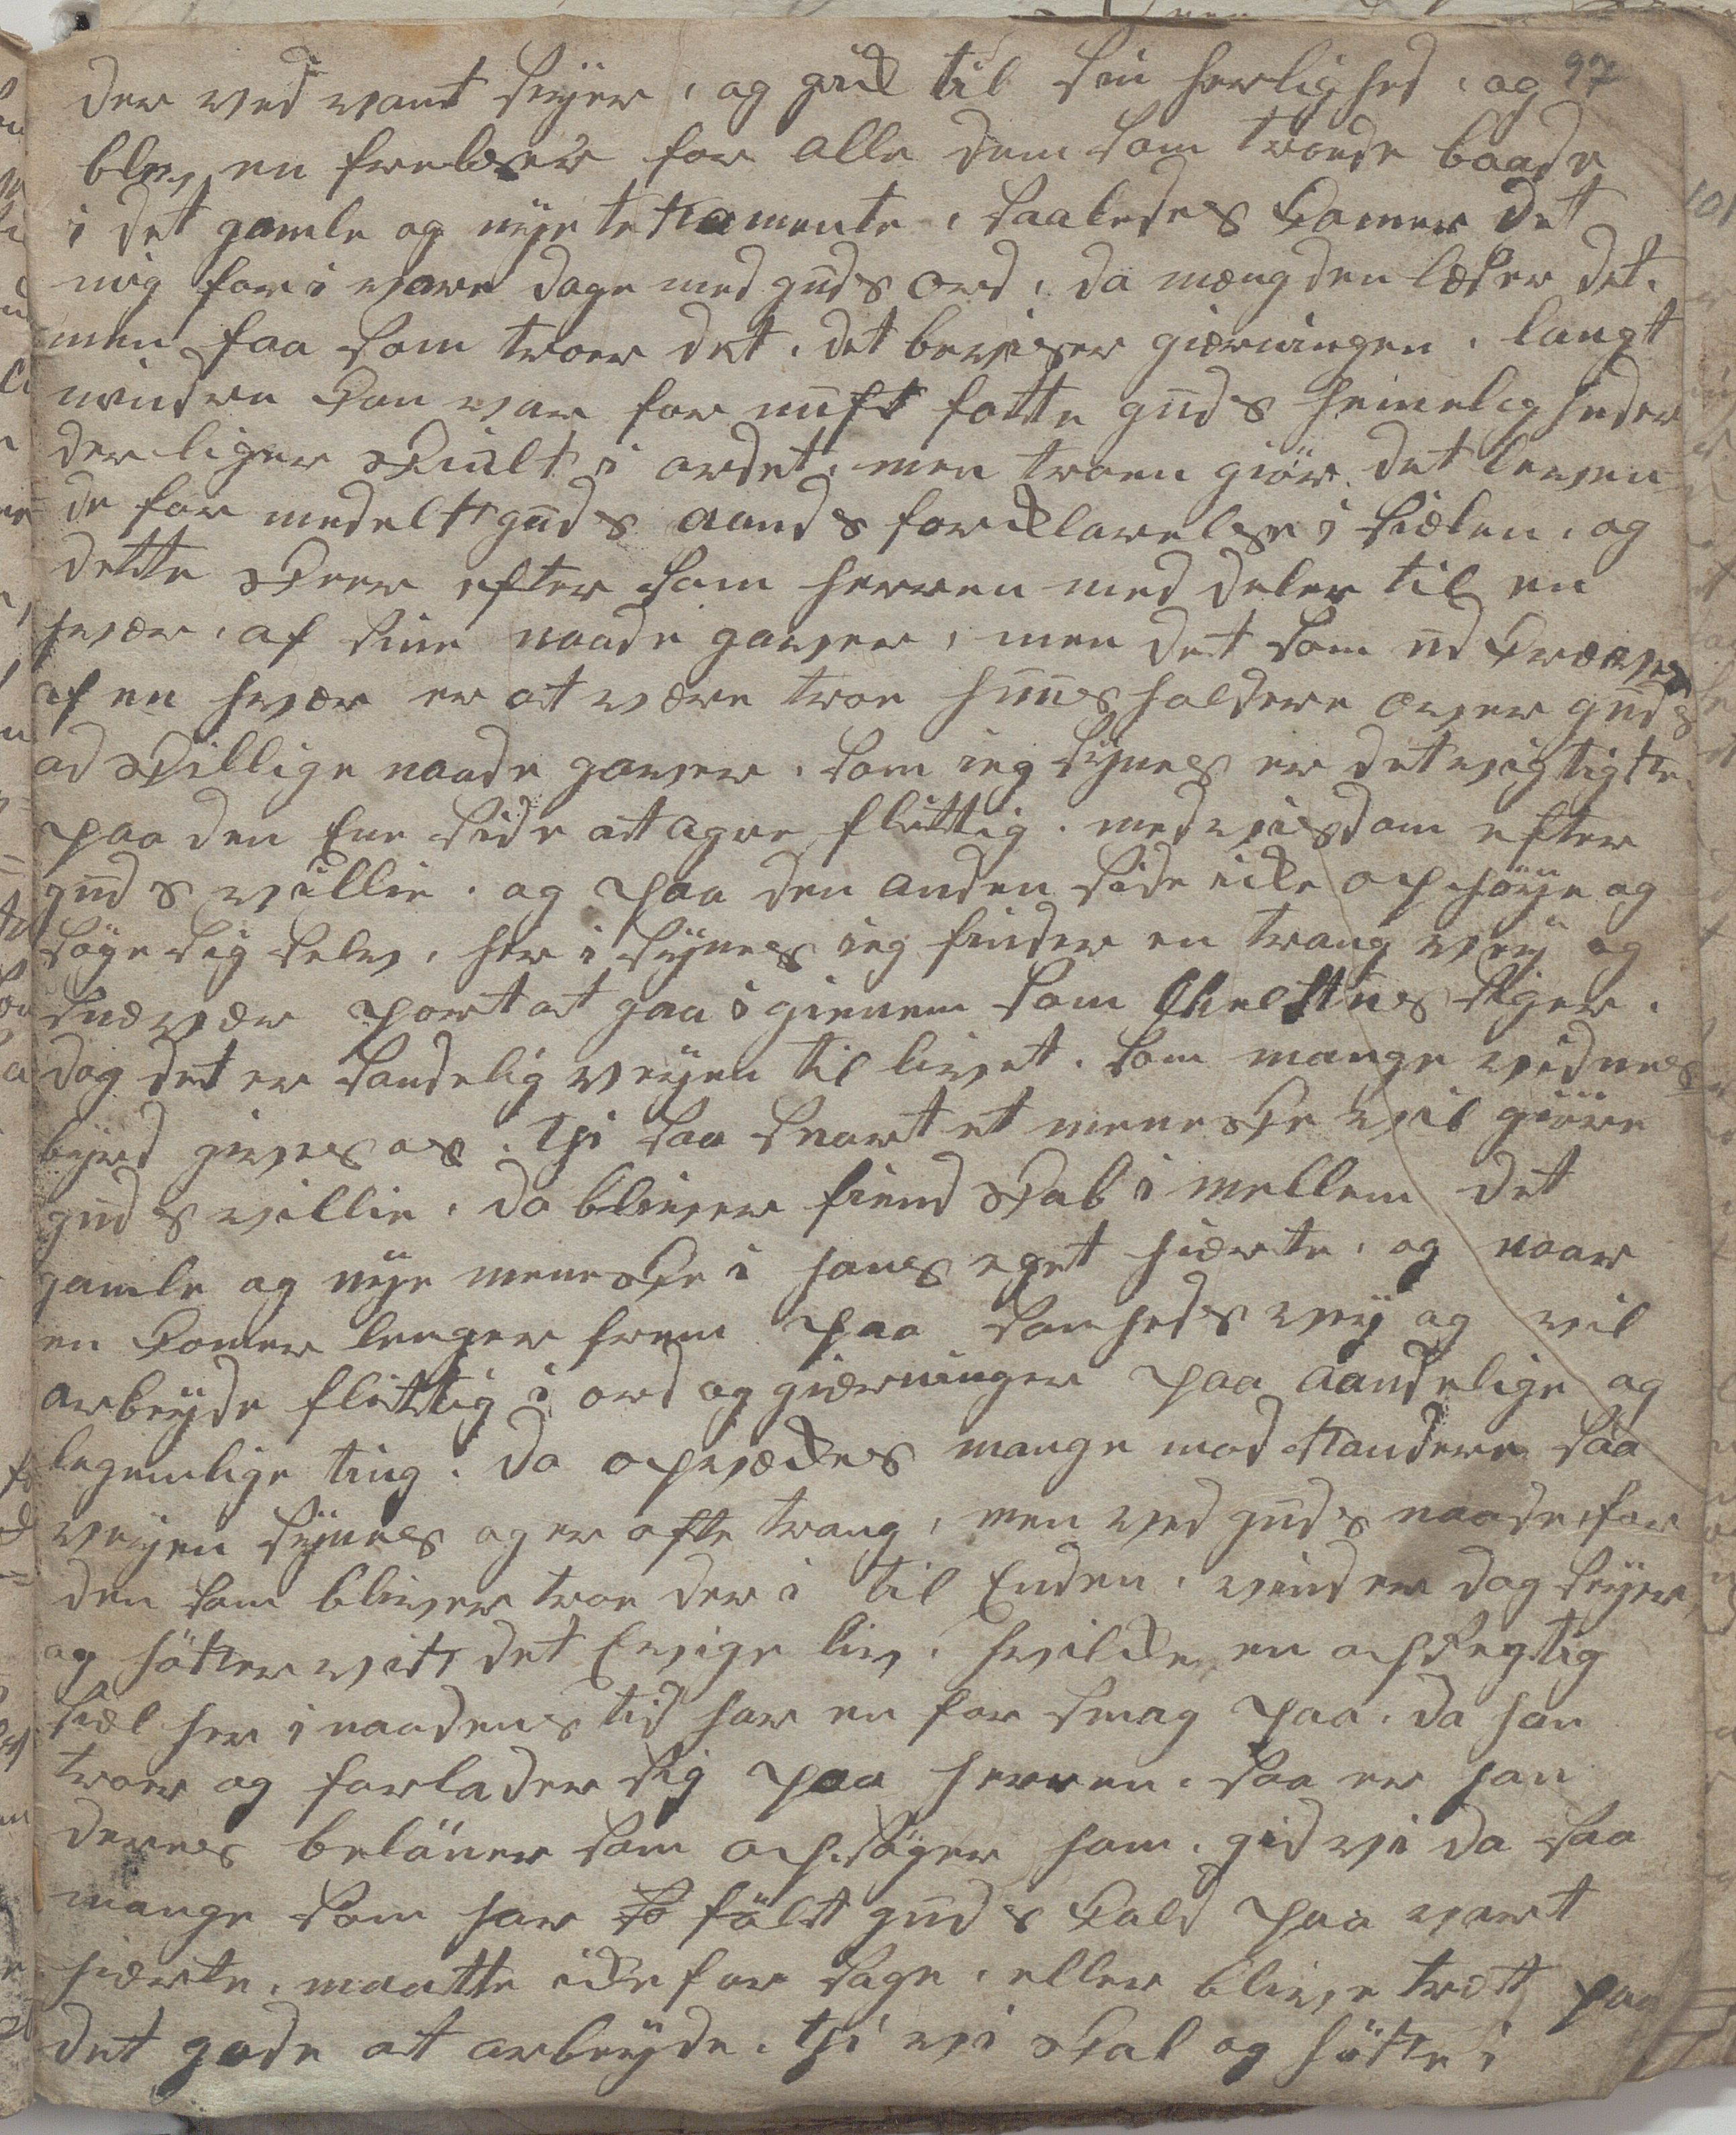 der ved vant seyer, og gik til sin herlighed, og 97
blev en frelsser for alle dem som troede baade
i det gamle og nye testamente, saaledes komer det
mig for i vore dage med guds ord, da mængden læser det,
men faa som troer det, det beviser gierningen, langt
mindre kan vor for nuft fatte guds heimeligheder
der liger skiult i ordet, men troen giør det leven¬
de for medelst guds aands for klarelse i siælen, og
dette skeer efter som herren med deler til en
hvær, af sine naade gaver, men det som ud kræves
af en hvær er at være troe huusholdere over guds
ad skillige naade gaver, som ieg synes er det vigtigste
paa den Ene side at agre flittig, med viisdom efter
guds villie, og paa den anden side ikke ophøye og
søge sig selv, her i synes ieg finder en trang vey og
snævær port at gaa igienem som Chrestus siger,
dog det er sandelig veyen til livet, som mange vidnes
byrd gives os, thi saa snart et meneske vil giøre
guds villie, da bliver fiendskab i mellem det
gamle og nye meneske i hans eget hierte, og naar
en komer lenger frem paa sanheds vey og vil
arbeyde flittig i ord og gierninger paa aandelige og
legemlige ting, da opvækkes mange mod standere saa
veyen synes og er ofte trang, men ved guds naade, for
den som bliver troe der i til Enden, vinder dog seyer,
og høster vist det Evige liv, hvilke en opregtig
siæl her i naadens tid har en for smag paa, da han
troer og forlader sig paa herren, saa er han
deres beløner som opsøger ham, gid vi da saa
mange som har følt guds kald paa vort
hierte, maatte ikke for sage, eller blive træt paa
det gode at arbeyde, thi vi skal og høste i